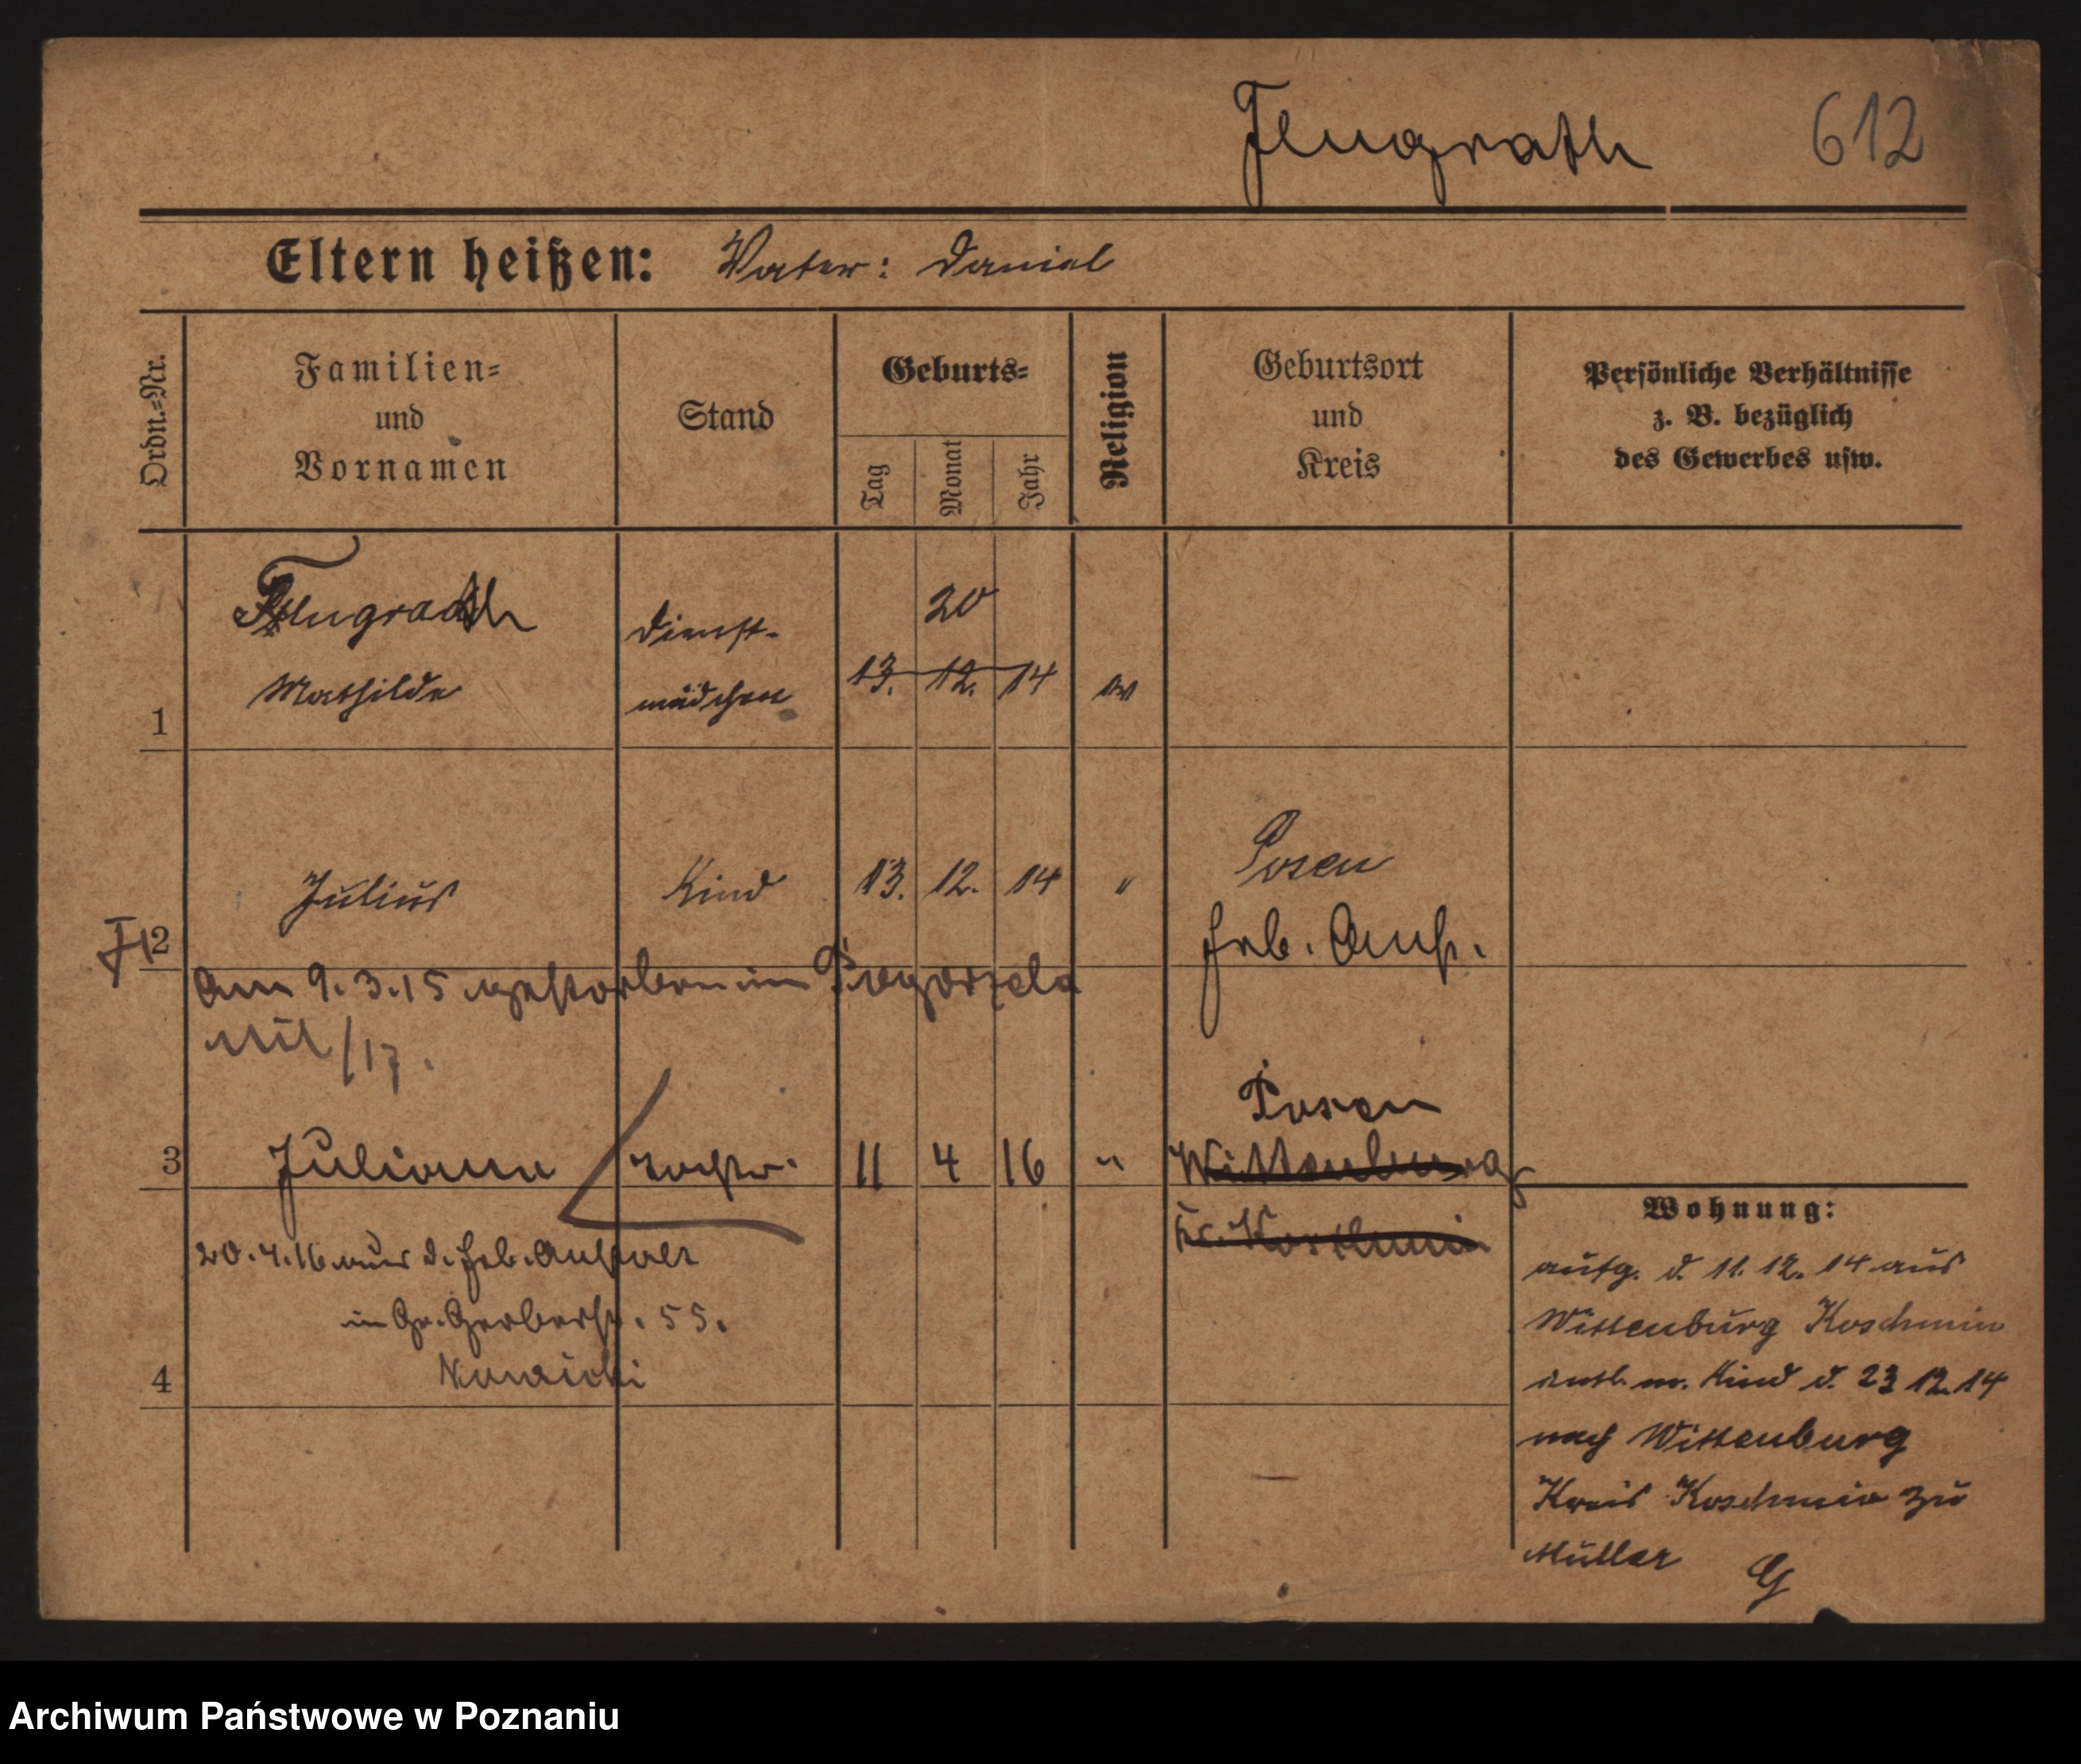 Flugrath 612
Eltern heißen: Vater: Daniel
Ordn.=Nr.
Familien=
und
Vornamen
Stand
Geburts=
Tag
Monat
Jahr
Religion
Geburtsort
und
Kreis
Persönliche Verhältnisse
z. B. bezüglich
des Gewerbes usw.
Flugrath
Mathilde
Dienst-
mädchen
20
13. 12. 14
ev
1
Julius Kind 13. 12. 14 "
Posen
Heb. Anst.
2
Am 9.3.15 gestorben in Pogorzela
/17.
3 Juliana Tochter. 11 4 16 "
Posen
Wittenburg
Kr. Koschmin
20.4.16 aus d. Heb. Anstalt
in Gr. Gerberstr. 55.
Nowicki
4
Wohnung:
aufg. d. 11. 12. 14 aus
Wittenburg Koschmin
entl. m. Kind d. 23 12. 14
nach Wittenburg
Kreis Koschmin zu
Müller G
Archiwum Państwowe w Poznaniu